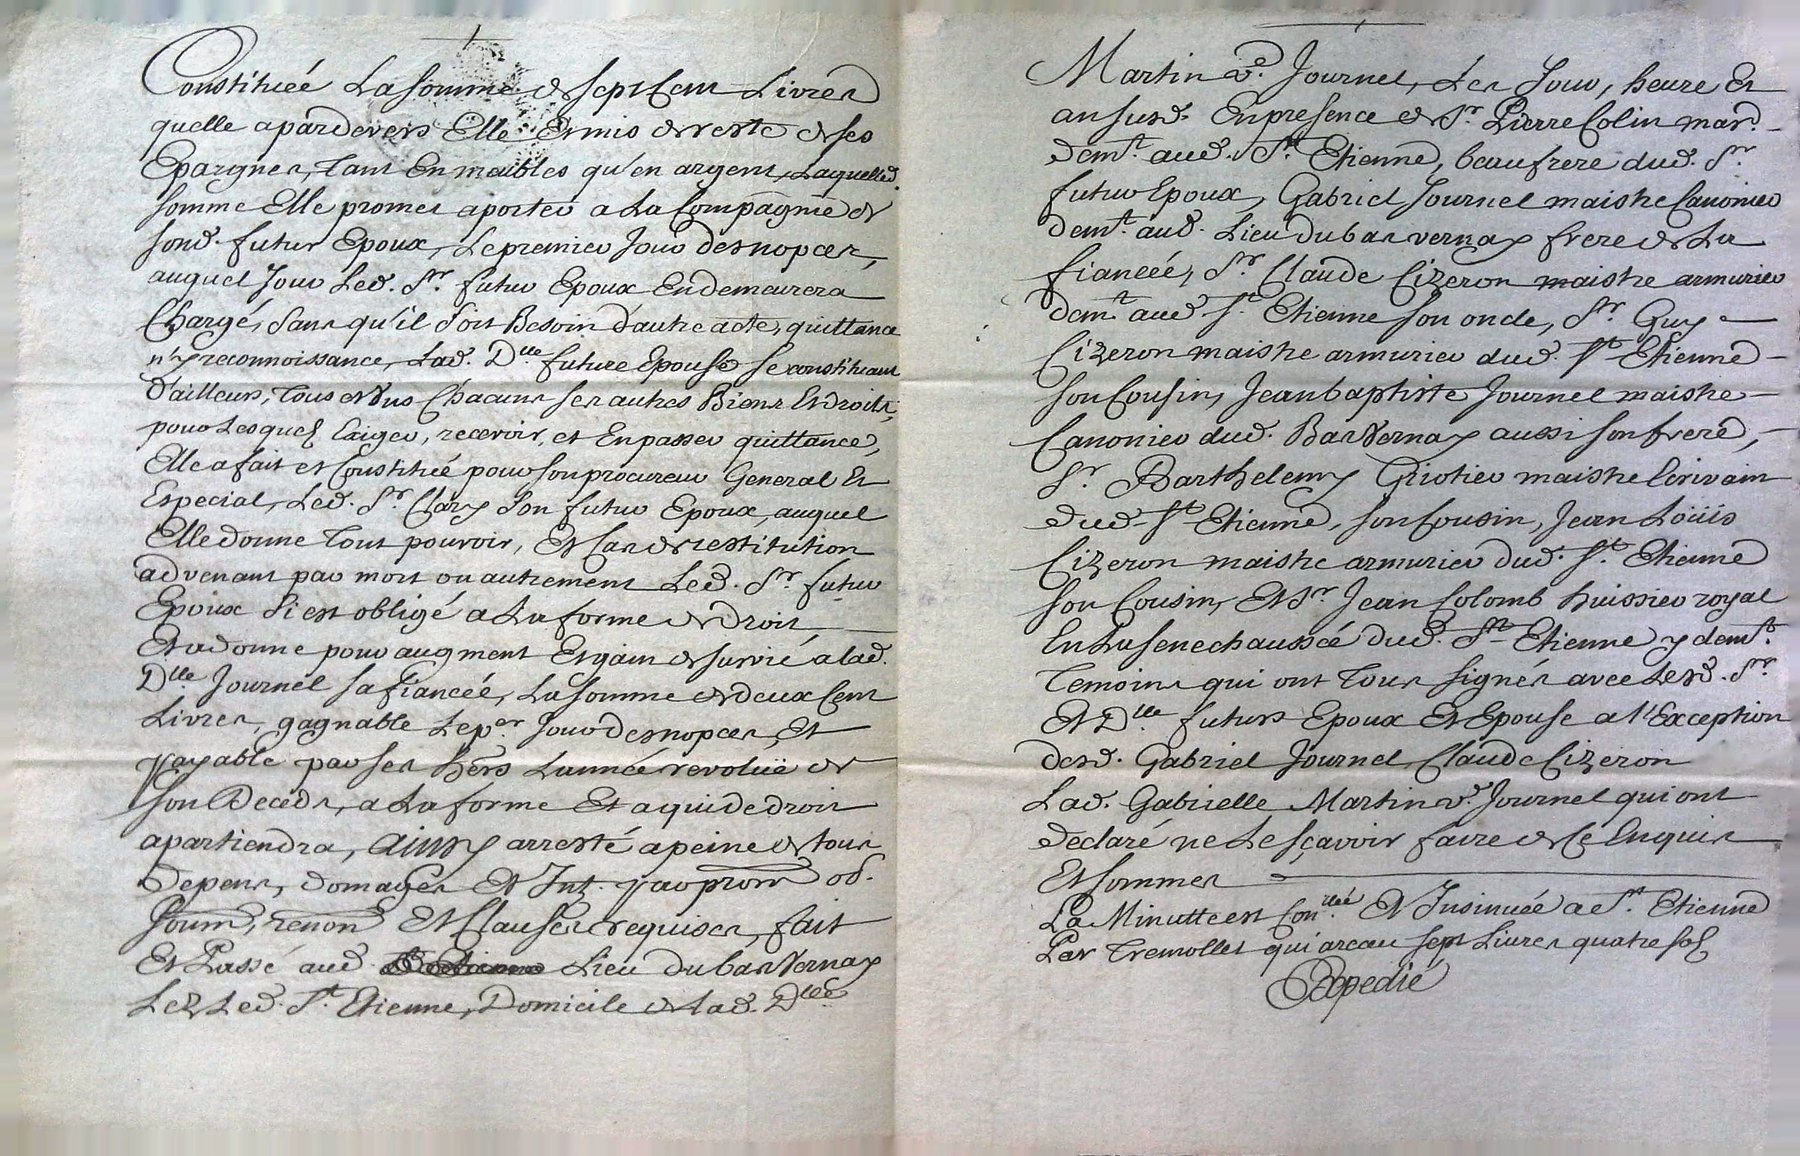 Constituéé La somme de sept Cent Livres
quelle a pardevers Elle Et mis en reste de ses
Epargnes, tant En meubles qu'en argent, Laquelled.
somme Elle promet aporter a La Compagnie de
sond. futur Epoux, Le premier Jour des nopces,
auquel Jour Led. Sr. futur Epoux En demeurera
Chargé, sans qu'il soit Besoin d'autre acte, quittance
n'y reconnoissance, Lad. Dlle future Epouse se constituant
D'ailleurs, tous et uns Chacuns ses autres Biens Et droits,
pour Lesquels Exiger, recevoir, et En passer quittance,
Elle a fait et Constitué pour son procureur General Et
Especial, Led. Sr. Clary son futur Epoux, auquel
Elle donne tout pouvoir, Et Cas de restitution
advenant par mort ou autrement Led. Sr. futur
Epoux s'i est obligé a La forme de droit
Et a donne pour augment Et gain de survié a lad.
Dlle Journel sa fiancéé, La somme de deux Cent
Livres, gagnable Le per. Jour des nopces, Et
payable par ses hers L'année revoluë de
son Decéds, a La forme Et a qui de droit
apartiendra, ainsy arresté a peine de tous
Depens, domages Et Int. par prom. ob.
soum, renon Et Clauses requises, fait
Et Passé aud. Lieu du bas Vernay
Lez Led. St. Etienne, Domicile de lad. Dlle
Martin ve. Journel, Les Jour, heure Et
an susd. En presence de Sr. Pierre Colin mard.
demt. aud. St. Etienne, beaufrere dud. Sr.
futur Epoux, Gabriel Journel maistre Canonier
demt. aud. Lieu du bas vernay frere de La
fiancéé, Sr. Claude Cizeron maistre armurier
demt. aud. St. Etienne son oncle, Sr. Guy
Cizeron maistre armurier dud. St. Etienne
son Cousin, Jean baptiste Journel maistre
Canonier dud. Bas Vernay aussi son frere,
Sr. Barthelemy Griotier maistre Ecrivain
dud. St. Etienne, son Cousin, Jean Loüis
Cizeron maistre armurier dud. St. Etienne
son Cousin, Et Sr. Jean Colomb huissier royal
En La senechaussée dud. St. Etienne y demt.
Temoins qui ont tous signés avec Lesd. Sr.
Et Dlle futurs Epoux Et Epouse a l'Exception
desd. Gabriel Journel, Claude Cizeron
Lad. Gabrielle Martin ve. Journel qui ont
declaré ne Le sçavoir faire de Ce Enquis
Et sommes
La Minutte est Con.lléé Et Insinuée a St. Etienne
Par Tremollet qui a receu sept Livres quatre sols
Expedié